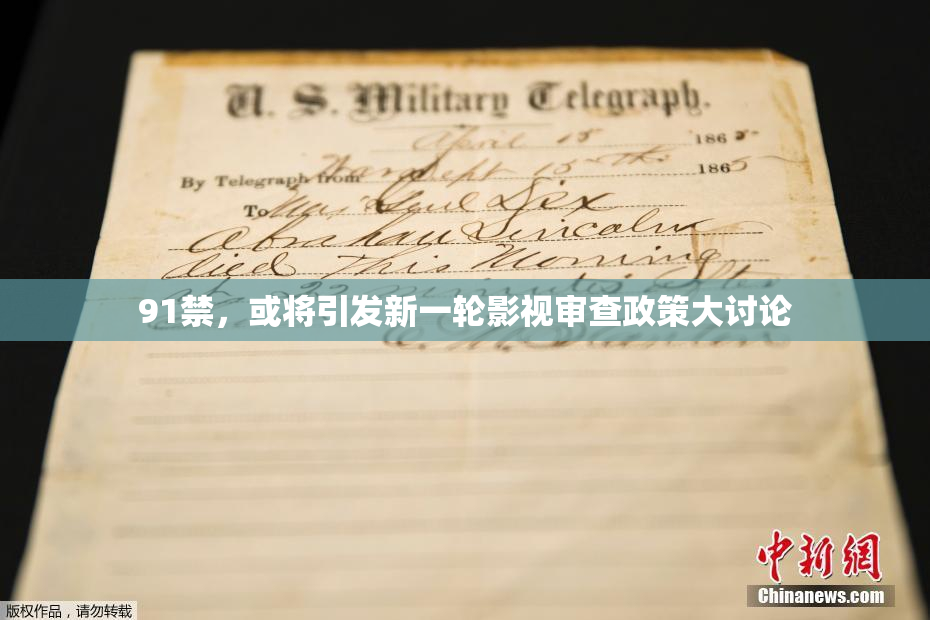 U. S. Military Telegraph.
April 15 1865
By Telegraph from War Dept 15th 1865
To Maj Genl Dix
Abraham Lincoln
died This Morning
at 22 minutes after
91禁，或将引发新一轮影视审查政策大讨论
E. M. Stanton
中新网
Chinanews.com
版权作品，请勿转载